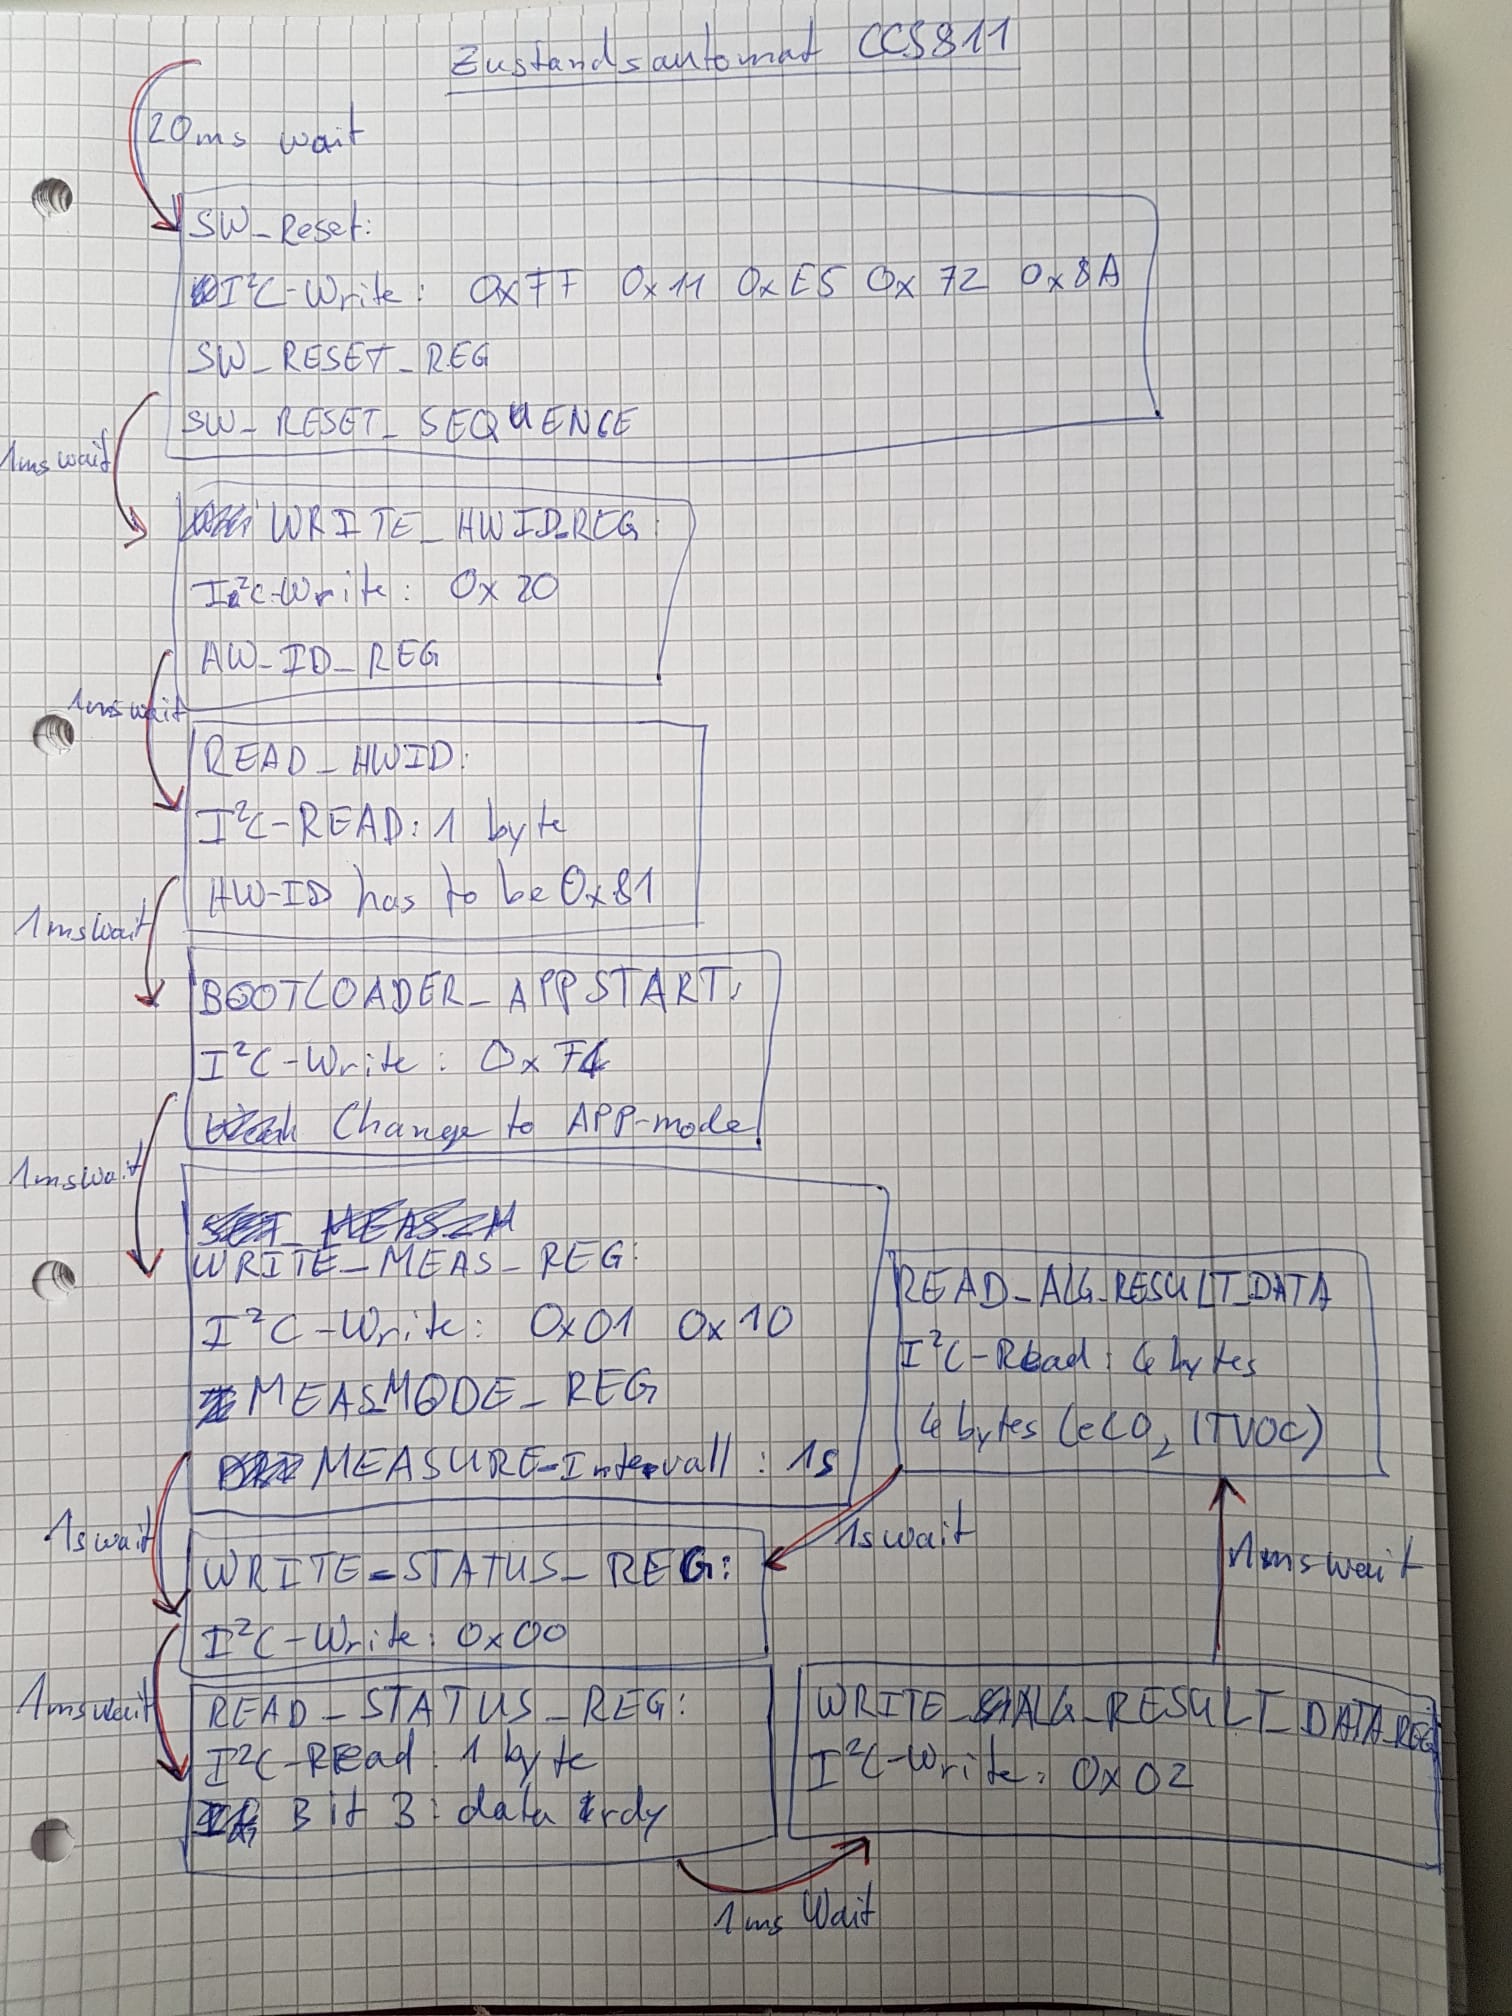 Zustandsautomat CCS811
20ms wait
SW_Reset:
I²C-Write: 0xFF 0x11 0xE5 0x72 0x8A
SW_RESET_REG
SW_RESET_SEQUENCE
1ms wait
WRITE_HWID_REG:
I²C-Write: 0x20
HW_ID_REG
1ms wait
READ_HWID:
I²C-READ: 1 byte
HW-ID has to be 0x81
1ms wait
BOOTLOADER_APPSTART:
I²C-Write: 0xF4
Change to APP-mode
1ms wait
WRITE_MEAS_REG:
I²C-Write: 0x01 0x10
MEASMODE_REG
MEASURE-Intervall: 1s
1s wait
WRITE_STATUS_REG:
I²C-Write: 0x00
1ms wait
READ_STATUS_REG:
I²C-Read: 1 byte
Bit 3: data rdy
1ms Wait
WRITE_ALG_RESULT_DATA_REG
I²C-Write: 0x02
1ms wait
READ_ALG_RESULT_DATA
I²C-Read: 4 bytes
4 bytes (eCO₂, TVOC)
1s wait